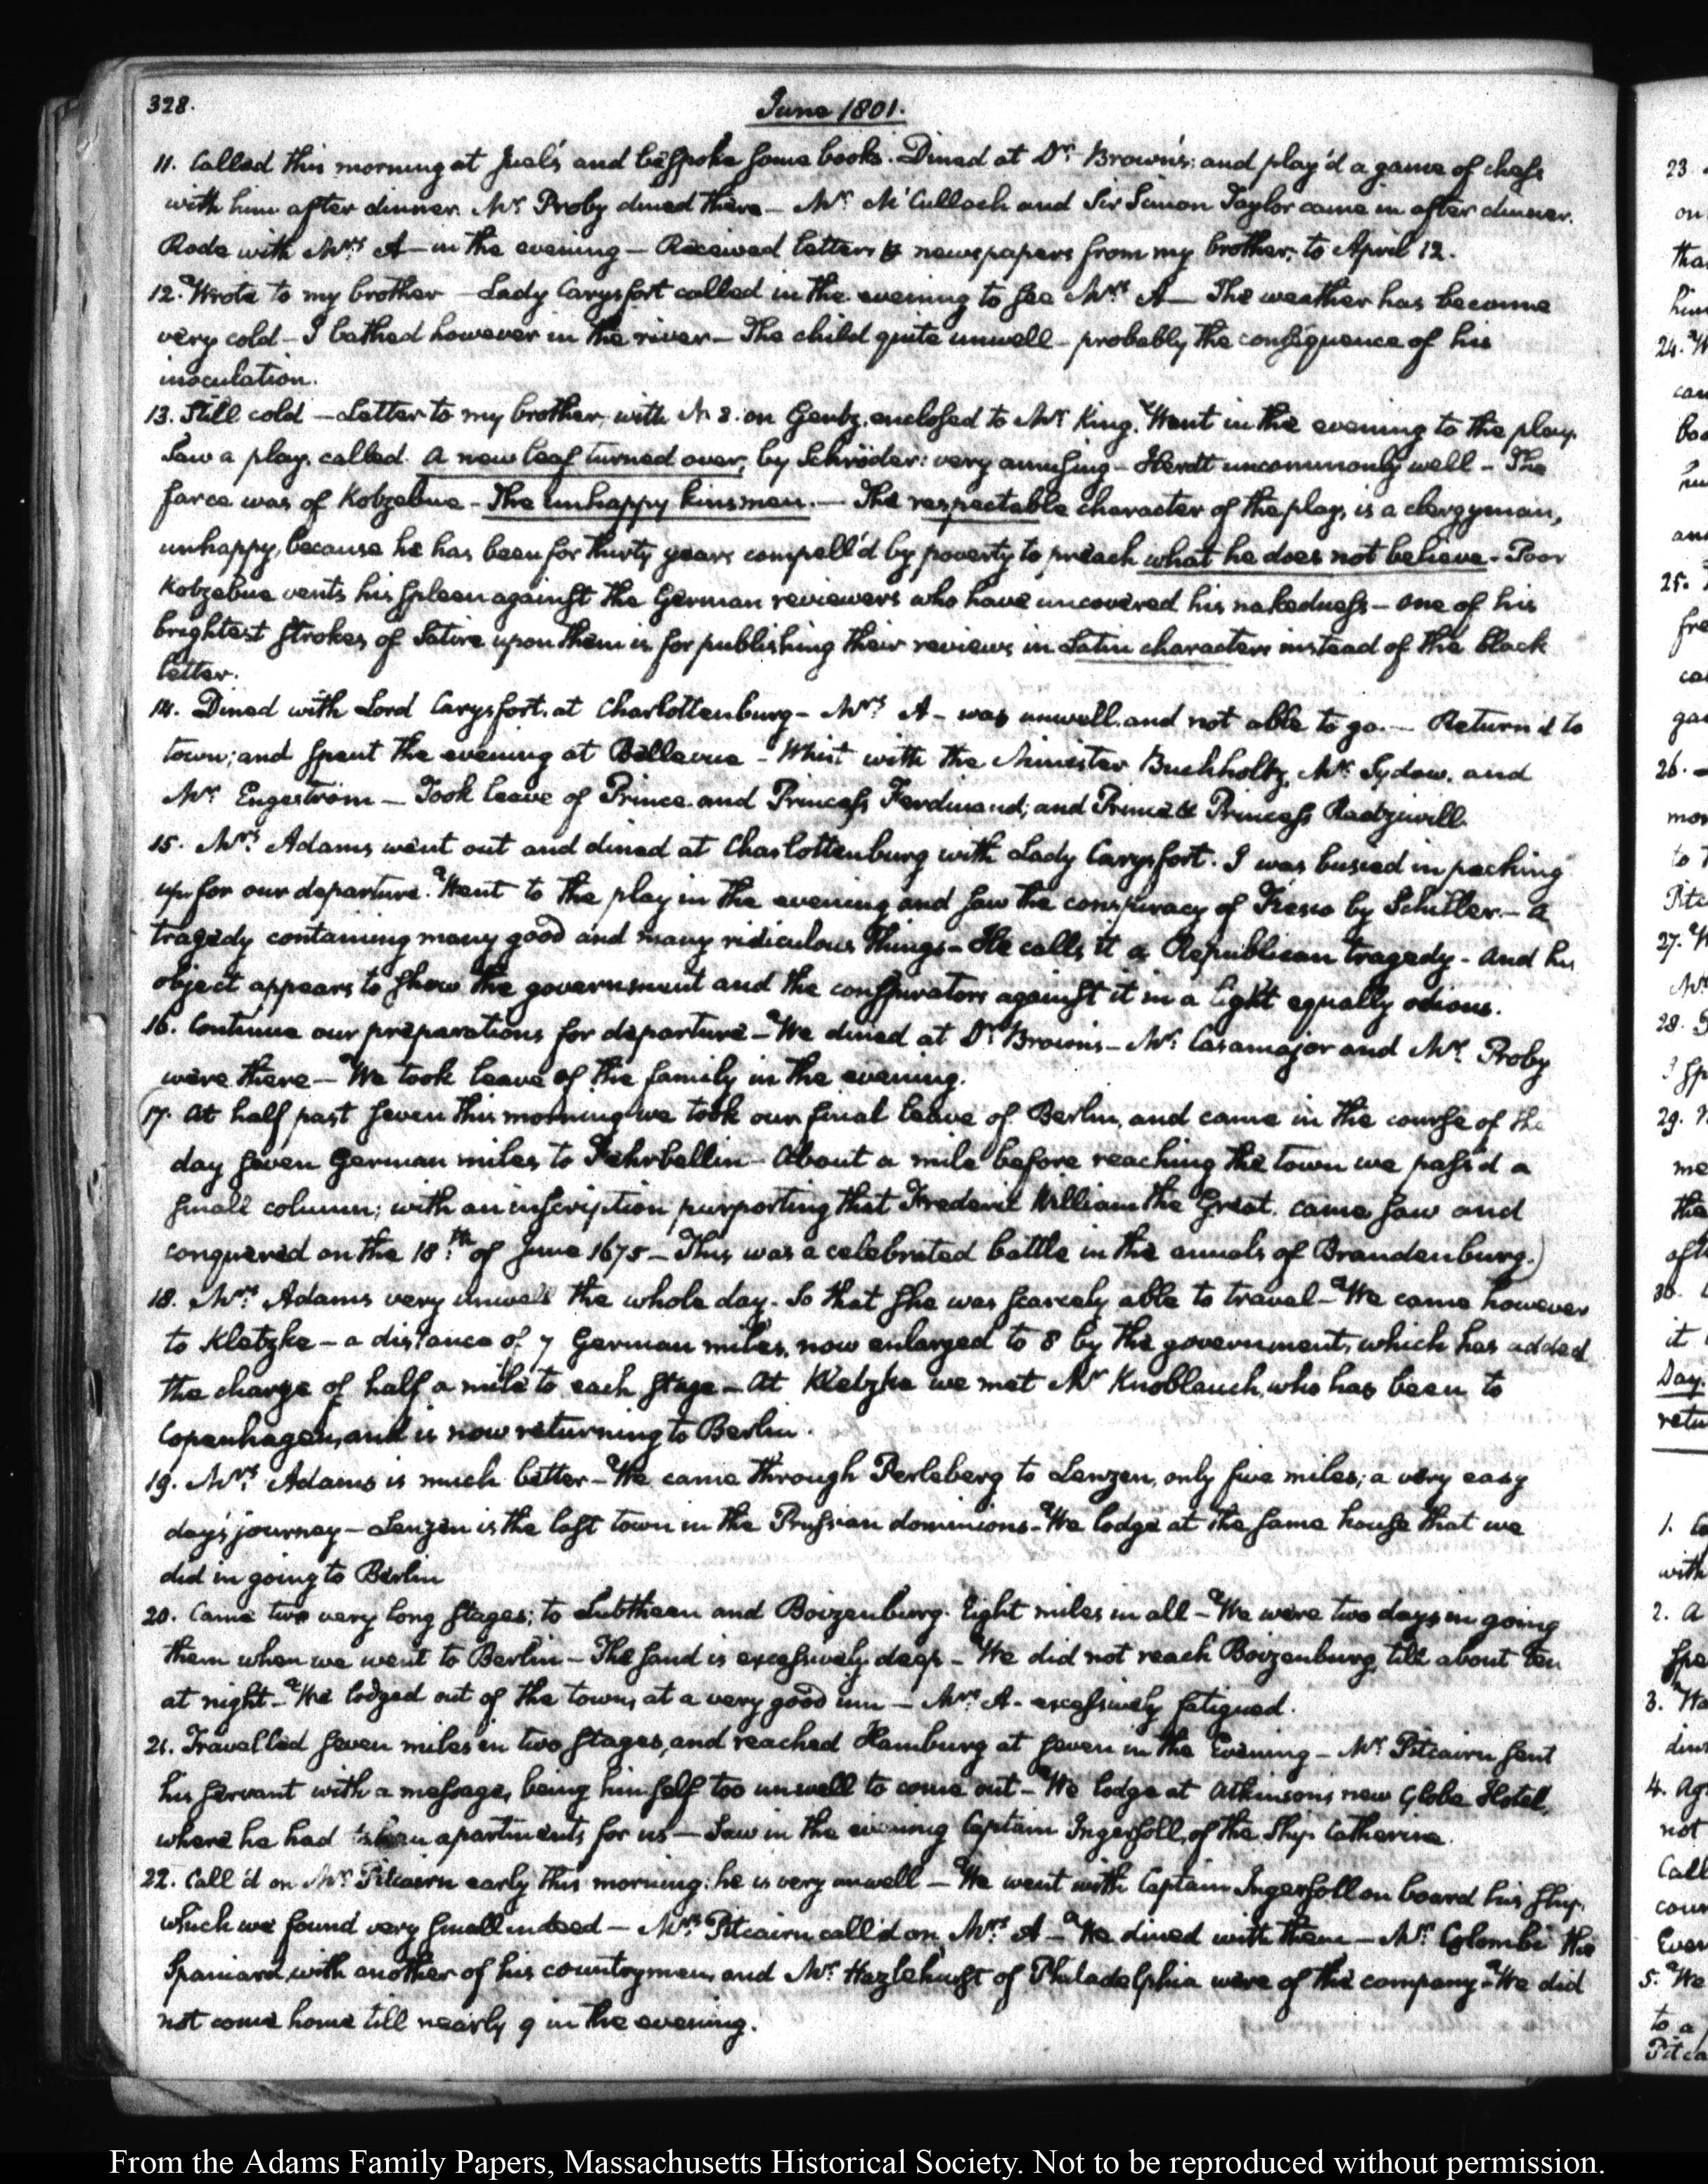 328.
June 1801.
11. Called this morning at Juel's and bespoke some books. Dined at Dr. Brown's; and play'd a game of chess
with him after dinner. Mr. Proby dined there — Mr. McCulloch and Sir Simon Taylor came in after dinner.
Rode with Mrs. A— in the evening — Received letters & newspapers from my brother, to April 12.
12. Wrote to my brother — Lady Carysfort called in the evening to see Mrs. A— The weather has become
very cold — I bathed however in the river — The child quite unwell — probably the consequence of his
inoculation.
13. Still cold — Letter to my brother, with N. 2. on Gentz, enclosed to Mr. King. Went in the evening to the play.
Saw a play, called. A new leaf turned over, by Schröder: very amusing — Herdt uncommonly well — The
farce was of Kotzebue — The unhappy kinsmen. — The respectable character of the play, is a clergyman,
unhappy, because he has been for thirty years compell'd by poverty to preach what he does not believe — Poor
Kotzebue vents his spleen against the German reviewers who have uncovered his nakedness — one of his
brightest strokes of Satire upon them is for publishing their reviews in Latin characters instead of the black
letter.
14. Dined with Lord Carysfort, at Charlottenburg — Mrs. A— was unwell and not able to go. — Return'd to
town; and spent the evening at Bellevue — Whist with the Minister Buchholtz, Mr. Sydow, and
Mr. Engeström — Took leave of Prince and Princess Ferdinand; and Prince & Princess Radziwill.
15. Mrs. Adams went out and dined at Charlottenburg with Lady Carysfort. I was busied in packing
up for our departure. Went to the play in the evening and saw the conspiracy of Fiesco by Schiller. — a
tragedy containing many good and many ridiculous things — He calls it a Republican tragedy — And his
object appears to show the government and the conspirators against it in a light equally odious.
16. Continue our preparations for departure — We dined at Dr. Brown's — Mr. Casamajor and Mr. Proby
were there — We took leave of the family in the evening.
(17. At half past seven this morning we took our final leave of Berlin, and came in the course of the
day seven German miles to Fehrbellin — About a mile before reaching the town we pass'd a
small column; with an inscription purporting that Frederic William the Great, came saw and
conquered on the 18th. of June 1675 — This was a celebrated battle in the annals of Brandenburg.)
18. Mrs. Adams very unwell the whole day. So that she was scarcely able to travel — We came however
to Kletzke — a distance of 7 German miles, now enlarged to 8 by the government, which has added
the charge of half a mile to each stage — At Kletzke we met Mr. Knoblauch, who has been to
Copenhagen, and is now returning to Berlin.
19. Mrs. Adams is much better — We came through Perleberg to Lenzen, only five miles; a very easy
day's journey — Lenzen is the last town in the Prussian dominions — We lodge at the same house that we
did in going to Berlin
20. Came two very long stages; to Lubtheen and Boizenburg. Eight miles in all — We were two days in going
them when we went to Berlin — The sand is excessively deep — We did not reach Boizenburg, till about ten
at night — We lodged out of the town, at a very good inn — Mrs. A— excessively fatigued.
21. Travelled seven miles in two stages, and reached Hamburg at seven in the Evening — Mr. Pitcairn sent
his servant with a message, being himself too unwell to come out — We lodge at Atkinsons new Globe Hotel,
where he had taken apartments for us — Saw in the evening Captain Ingersoll, of the Ship Catherine.
22. Call'd on Mr. Pitcairn early this morning: he is very unwell — We went with Captain Ingersoll on board his ship.
which we found very small indeed — Mrs. Pitcairn call'd on Mrs. A — We dined with them — Mr. Colombi the
Spaniard, with another of his countrymen, and Mr. Hazlehurst of Philadelphia were of the company — We did
not come home till nearly 9 in the evening.
From the Adams Family Papers, Massachusetts Historical Society. Not to be reproduced without permission.